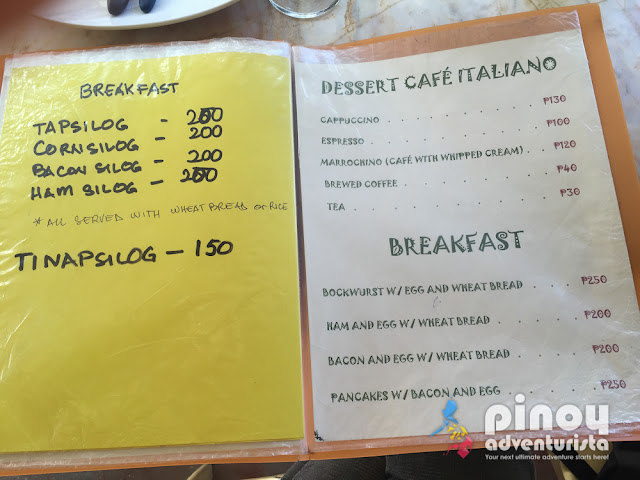 BREAKFAST
TAPSILOG - 200
CORNSILOG - 200
BACON SILOG - 200
HAM SILOG - 200
*ALL SERVED WITH WHEAT BREAD or RICE
TINAPSILOG - 150
DESSERT CAFÉ ITALIANO
CAPPUCCINO ₱130
ESPRESSO . . . . . . . . . . . . ₱100
MARROCHINO (CAFÉ WITH WHIPPED CREAM) . . ₱120
BREWED COFFEE . . . . . . . . . . ₱40
TEA . . . . . . . . . . . . . . ₱30
BREAKFAST
BOCKWURST W/ EGG AND WHEAT BREAD . . . . ₱250
HAM AND EGG W/ WHEAT BREAD . . . . . . ₱200
BACON AND EGG W/ WHEAT BREAD . . . . . ₱200
PANCAKES W/ BACON AND EGG . . . . . . ₱250
pinoy
adventurista
Your next ultimate adventure starts here!